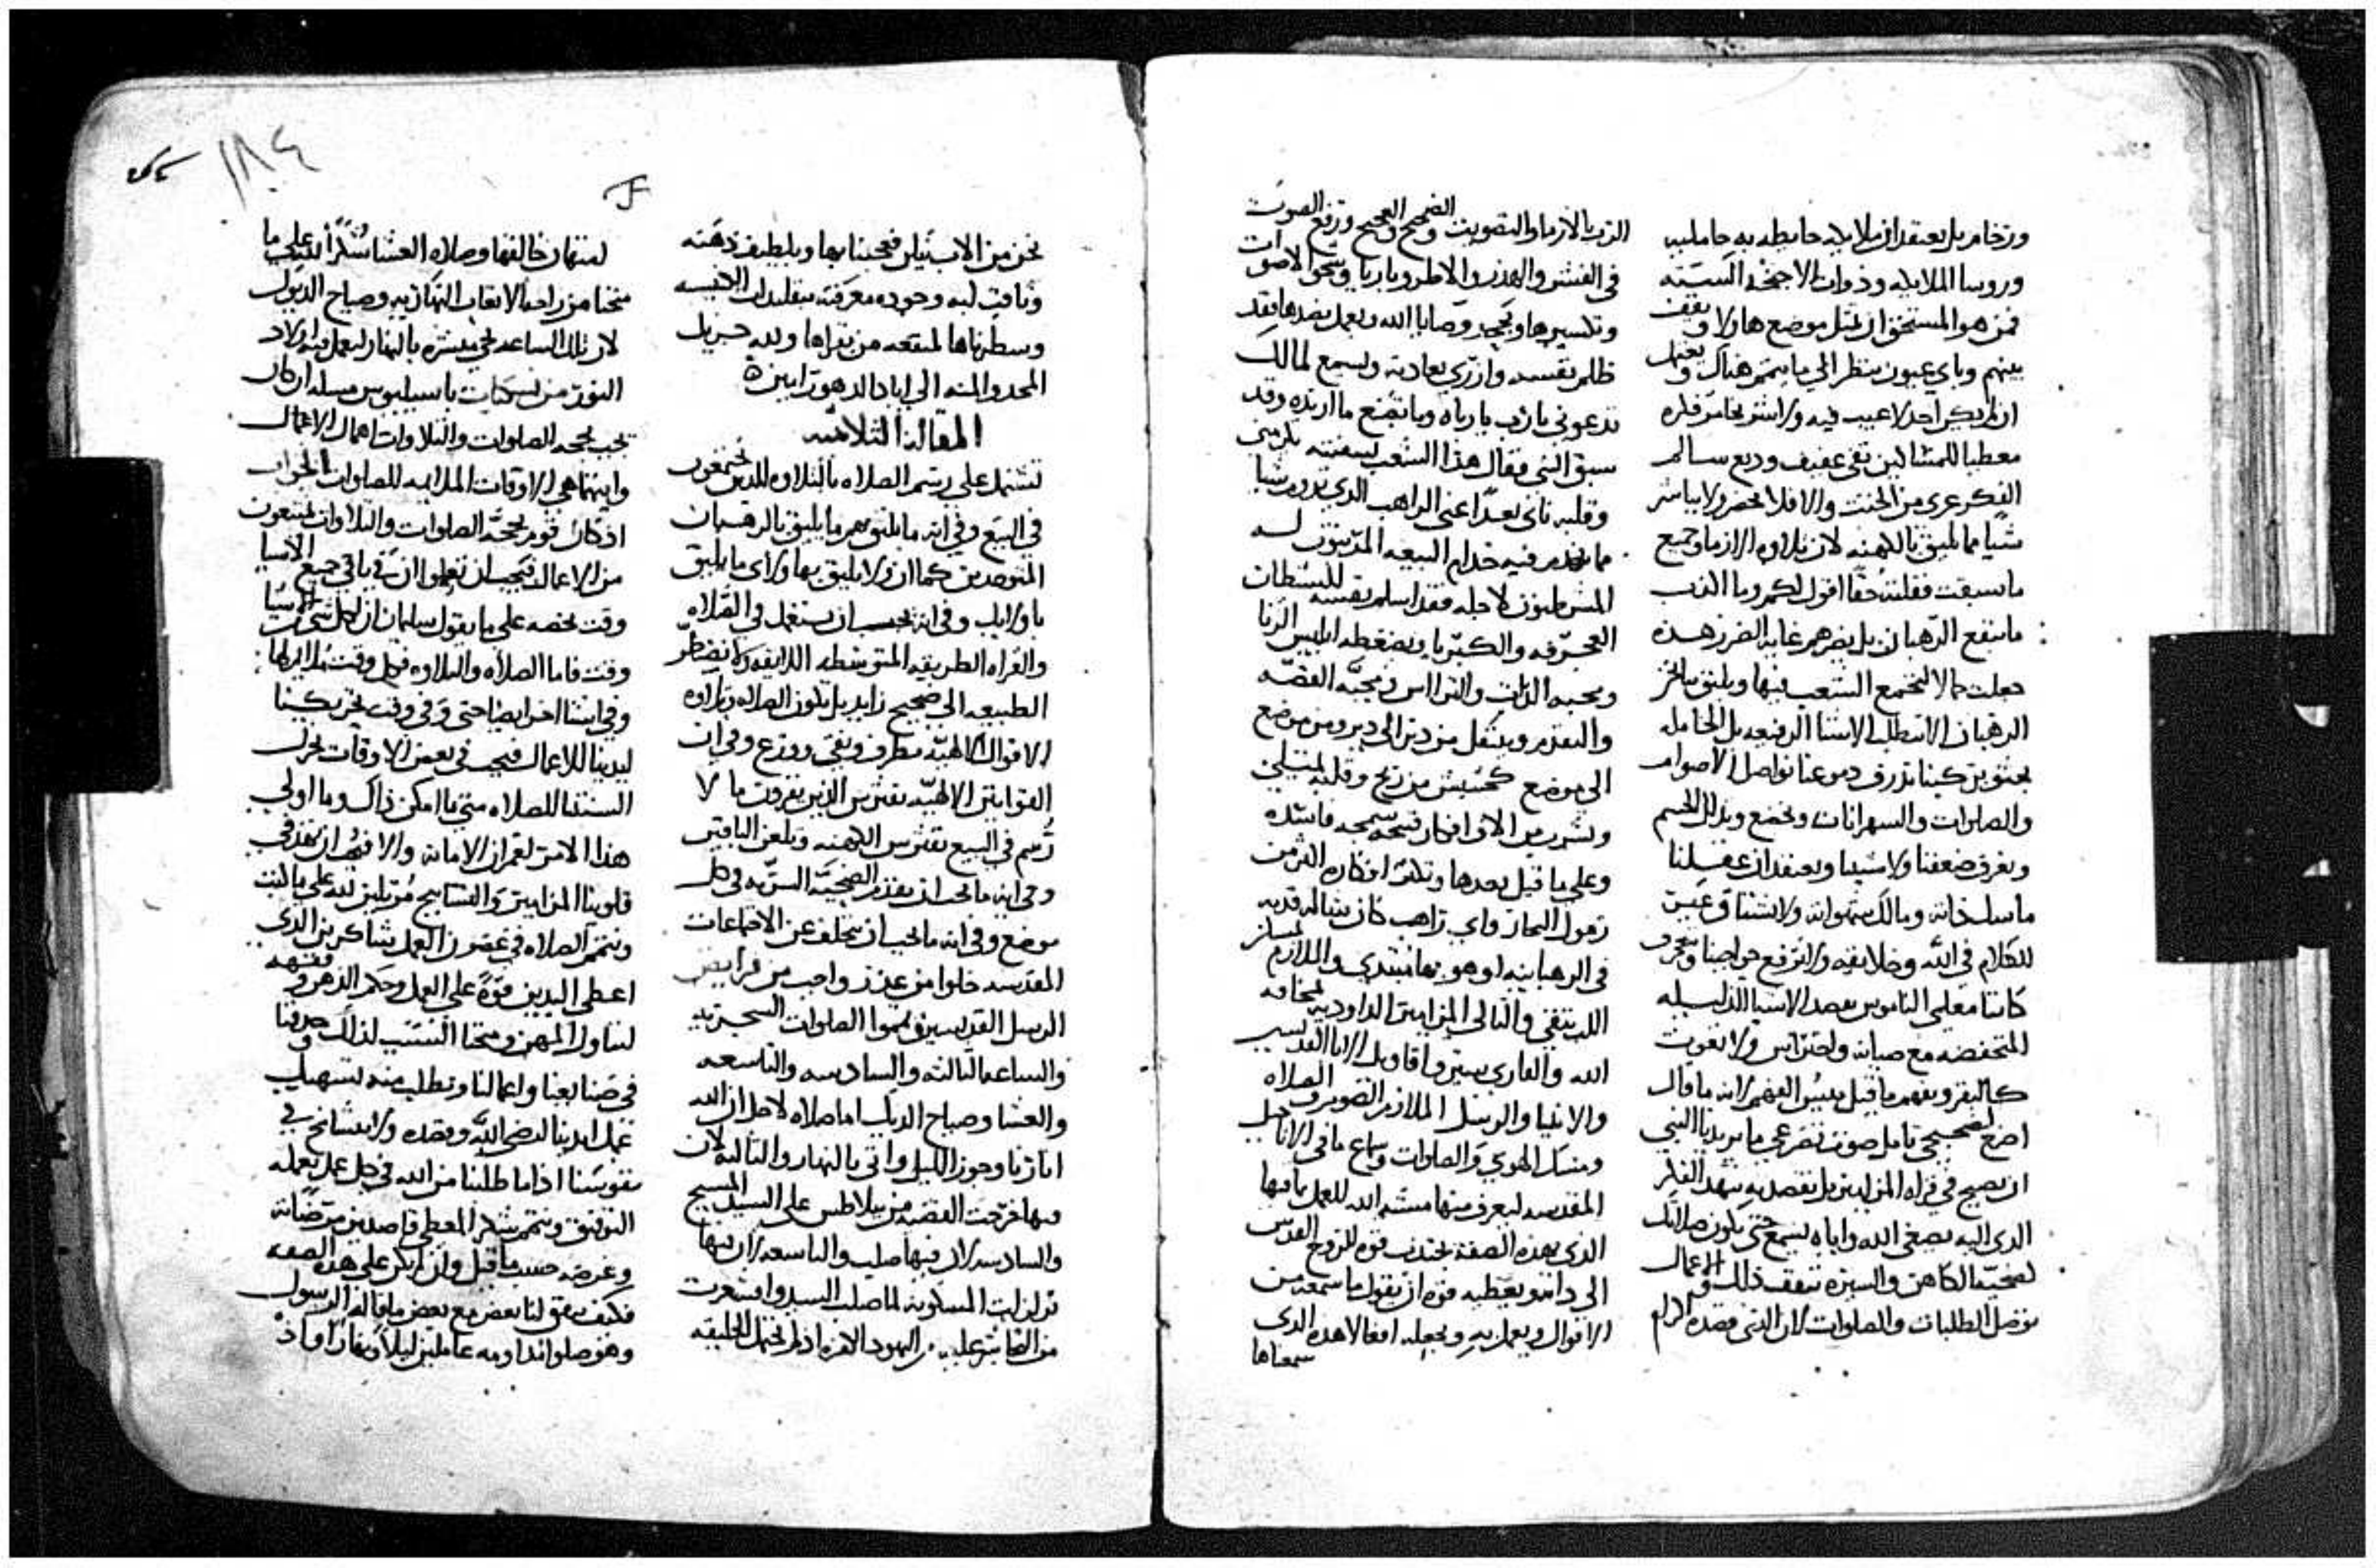 ورخام بل يعتقد ان ملايكه حايطه به حاملين
وروسا الملايكه وذوات الاجنحه الستة
فمن هو المستحق ان يمثل موضع هاولا ويقف
بينهم وباي عيون ينظر الي ما يتم هناك
ان لم يكن احد لا عيب فيه
معطيا للمشاكين نقي عفيف وديع سالم
الفكر عري من الخبث والا فلا يحضر ولا يباشر
شيا مما يليق بالكهنه لان تلاوه الارما وجميع
ما سبقت فقلته حقا اقول لكم وما الذي
ما ينفع الرهبان بل يضرهم غايه الضرر هذه
جعلت حالا ليجتمع الشعب فيها ويليق بنا نحن
الرهبان الا نطلب الاشيا الرفيعه بل الخامله
دموعنا نواصل الاصوام
والصلوات والسهرانات ونخضع ونذلل الجسم
ونعرف ضعفنا ولا سيما ونعتقد ان عقلنا
للكلام في الله وخلايقه ولا نرفع حواجبنا
كاننا معلمي الناموس بقصد الاشيا الذليله
المنخفضه مع صيانه واحتراس ولا نعوت
كالبقر ونفهم ما قيل بعيس الفهم لانه ما قال
النبي
ان نصيح في قراه المزامير بل نقصد به شهد الفكر
الذي اليه يصغي الله واياه يسمع حتي تكون صلاتك
لضحية الكاهن والسيره تتفق ذلك والاعمال
توصل الطلبات والصلوات لان الذي قصده
الرب بالارما والتصويت والضجيج والعجيج ورفع الصوت
في الفنش والهذر والاطروباريا وشجو الاصوات
وتكسيرها ويجحد وصايا الله ويعمل بضدها فقد
ظلم نفسه وازري بعادته وليسمع لما لك
تدعوني يا رب يا رباه وما تصنع ما اريده وقد
سبق النبي فقال هذا الشعب بشفتيه يكرمني
وقلبه ناي بعدا عني الراهب الذي يروم شيا
مما يخدم فيه خدام البيعه المرتبون له
المشرطنون لاجله فقد اسلم نفسه للشطات
العجرفه والكبريا ويضغطه ابليس الزنا
ومحبه الذات والتراس ومحبه الفضه
والتقدم وينتقل من دير الي دير ومن موضع
الي موضع كحشيش من ريح وقلبه يمتلي
ونشرب من الاف افكار قبيحه سمجه فاسده
وعلي ما قيل بعدها وتكثر افكاره اكثر من
رمول البحار واي راهب كان
في الرهبانيه او هو بها مبتدي والملازم
الله يتقي والتالي المزامير الداوديه لمخافه
الله والقاري سير واقاويل الابا القديسين
والانبيا والرسل الملازم الصوم والصلاه
ومسك الهوي والصلوات وسماع ما في الاناجيل
المقدسه ليعرف منها مشيه الله للعمل بما فيها
الذي بهذه الصفه يجتذب قوه الروح القدس
الي ذاته ويعطيه قوه ان يقول ما سمعه من
الاقوال ويعمل به ويجعله افعالا هذه الذي
سمعناها
١٨٤
نحن من الاب نيلس فعجبنا بها وبلطيف ذهنه
وثاقب لبه وجوده معرفته بتقليدات الانفس
وسطرناها لمنفعه من يقراها ولله جزيل
المجد والمنه الي اباد الدهور امين
المقالة الثلاثين
تشتمل علي رسم الصلاه بالتلاوه للذين يجتمعون
في البيع وفي انه ما يليق بهم ما يليق بالرهبان
المتوحدين كما ان لا يليق بها ولاي ما يليق
باولايك وفي انه يجب ان يستعمل في الصلاه
والقراه الطريقه المتوسطه اللايقه ولا تضطر
الطبيعه الي ضجيج زايد بل تكون الصلاه وتلاوه
الاقوال الالهيه بطرف ونقي وورع وفي ان
القوانين الالهيه تفترس الذين يقرون ما لا
رسم في البيع تفترس الكهنه وتلعن الباقين
وفي انه ما يجب ان يقدم الضحيه السريه في كل
موضع وفي انه ما يجب ان يتخلف عن الاجتماعات
المقدسه خلوا من عذر واجب من فرايض
الرسل القديسين تمموا الصلوات السحريه
والساعه الثالثه والسادسه والتاسعه
والعشا وصياح الديك اما صلاه لاجل ان الله
انارنا وجوز الليل واتي بالنهار والثالثه لان
فيها خرجت القضيه من بيلاطس علي السيد المسيح
والسادسه لان فيها صلب والتاسعه لان فيها
تزلزلت المسكونه لما صلب السيد واقشعرت
من اليهود الكفره اذ لم تحتمل الخليقه
استهان خالقها وصلاه العشا شكرا لله علي ما
منحنا من راحه الاتعاب النهاريه وصياح الديوك
لان تلك الساعه هي مبشره بالنهار ليعمل فيه اولاد
النور من نسكيات باسيليوس مسله ان كان
يجب بحجه الصلوات والتلاوات اهمال الاعمال
وايتما هي الاوقات الملايمه للصلوات الجواب
اذ كان قوم بحجه الصلوات والتلاوات يمتنعون
من الاعمال فيجب ان تعلموا ان في باقي جميع الاشيا
وقت يخصه علي ما يقول سليمان ان لكل شي من الاشيا
وقت فاما الصلاه والتلاوه فكل وقت ملايم لها
وفي اشيا اخر ايضا حتي وفي وقت تحريكنا
ايدينا للاعمال فيجب في بعض الاوقات نحرك
السنتنا للصلاه متي ما امكن ذاك وما اولي
هذا الامر لعمران الامانه والا فيجب ان نهذ في
قلوبنا المزامير والتسابيح مرتلين لله علي ما كتب
ونتمم الصلاه في غضون العمل شاكرين الذي
اعطي اليدين قوه علي العمل وحكم الذهن وفقهه
لتناول المهن ومنحنا التسبب لذلك
في صنايعنا واعمالنا ونطلب منه تسهيل
عمل ايدينا لرضي الله وبقصده ولا نتشامخ في
نفوسنا اذا ما طلبنا من الله في كل عمل نعمله
التوفيق ونتمم شكر المعطي قاصدين مرضاته
وغرضه حسب ما قيل وان لم يكن علي هذه الصفه
فكيف يتفق لنا بعض مع بعض ما قاله الرسول
وهو صلوا بمداومه عاملين ليلا ونهارا واذ